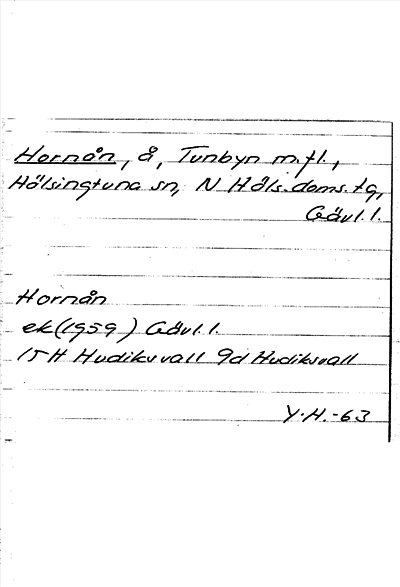 Hornån, å, Tunbyn m.fl.,
Hälsingtuna sn, N Häls. doms. tg,
Gävl. l.
Hornån
ek (1959) Gävl. l.
15H Hudiksvall 9d Hudiksvall
Y.H.-63